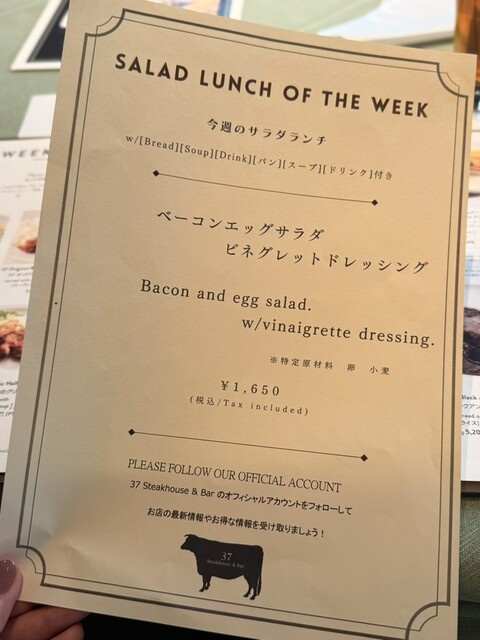 SALAD LUNCH OF THE WEEK
今週のサラダランチ
w/[Bread][Soup][Drink][パン][スープ][ドリンク]付き
ベーコンエッグサラダ
ビネグレットドレッシング
Bacon and egg salad.
w/vinaigrette dressing.
※特定原材料 卵 小麦
¥1,650
(税込/Tax included)
PLEASE FOLLOW OUR OFFICIAL ACCOUNT
37 Steakhouse & Bar のオフィシャルアカウントをフォローして
お店の最新情報やお得な情報を受け取りましょう！
37
Steakhouse & Bar